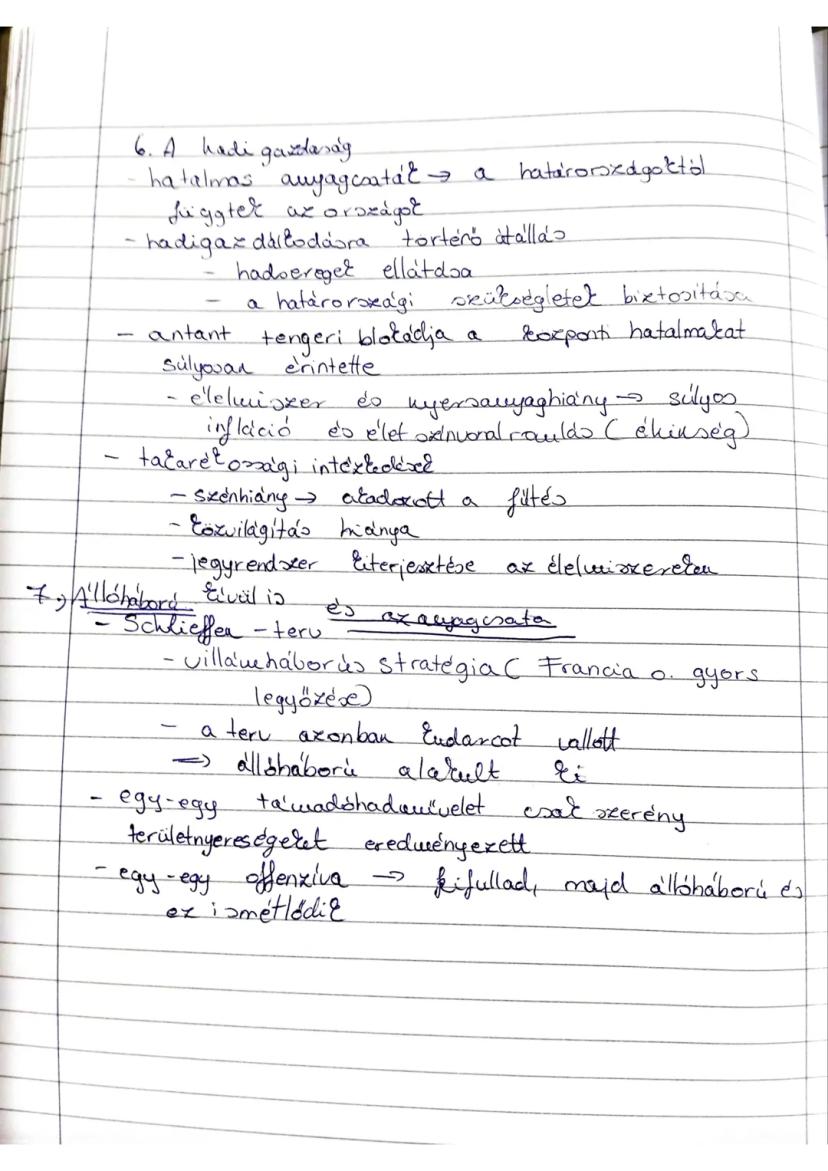 6. A hadi gazdaság
- hatalmas anyagcsaták → a határországoktól
függtek az országok
- hadigazdálkodásra történő átállás
- hadsereget ellátása
- a határországi szükségletek biztosítása
- antant tengeri blokádja a központi hatalmakat
súlyosan érintette
- élelmiszer és nyersanyaghiány → súlyos
infláció és élet színvonal romlás (éhinség)
- takarékossági intézkedések
- szénhiány → akadozott a fűtés
- közvilágítás hiánya
- jegyrendszer kiterjesztése az élelmiszereken
kívül is
7, Állóháború és az anyagcsata
- Schlieffen-terv
- villámháborús stratégia ( Francia o. gyors
legyőzése)
- a terv azonban kudarcot vallott
=> állóháború alakult ki
- egy-egy támadóhadművelet csak szerény
területnyereségeket eredményezett
- egy-egy offenzíva → kifullad, majd állóháború és
ez ismétlődik